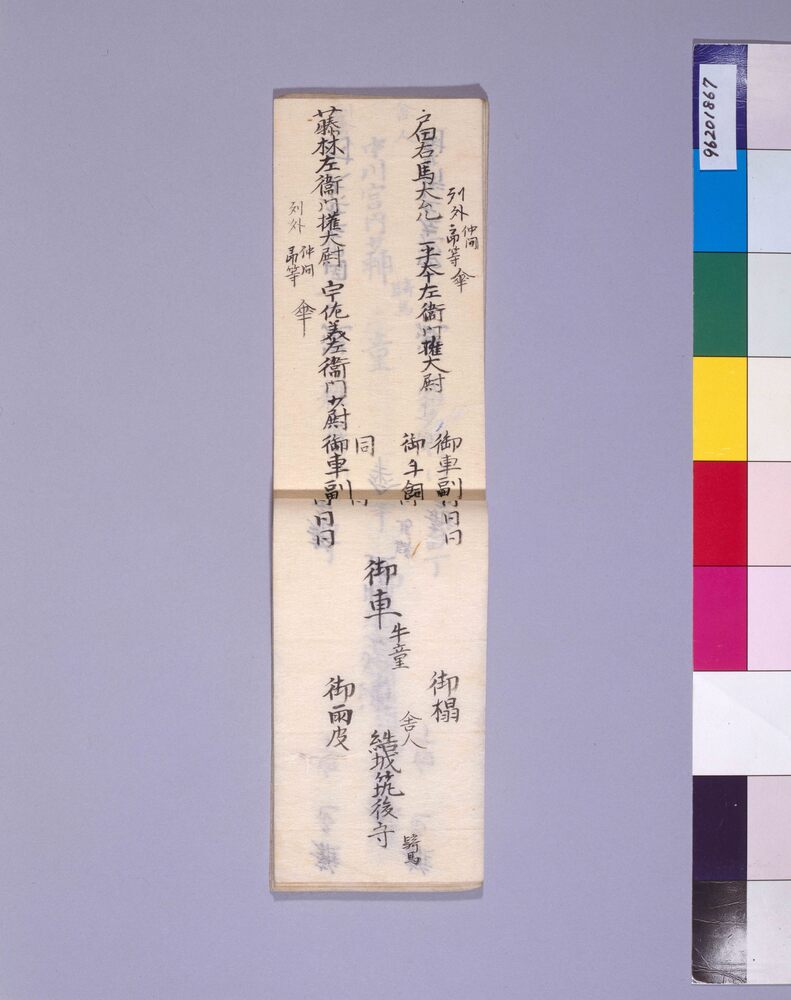 戸田右馬大允
列外
仲間
弟等
傘
平本左衛門権大尉
藤林左衛門権大尉
列外
仲間
弟等
傘
宇佐美左衛門少尉
御車副
同同
御牛飼
同
御車副
同同
御車
牛童
御榻
御雨皮
舎人
結城筑後守
騎馬
96201867